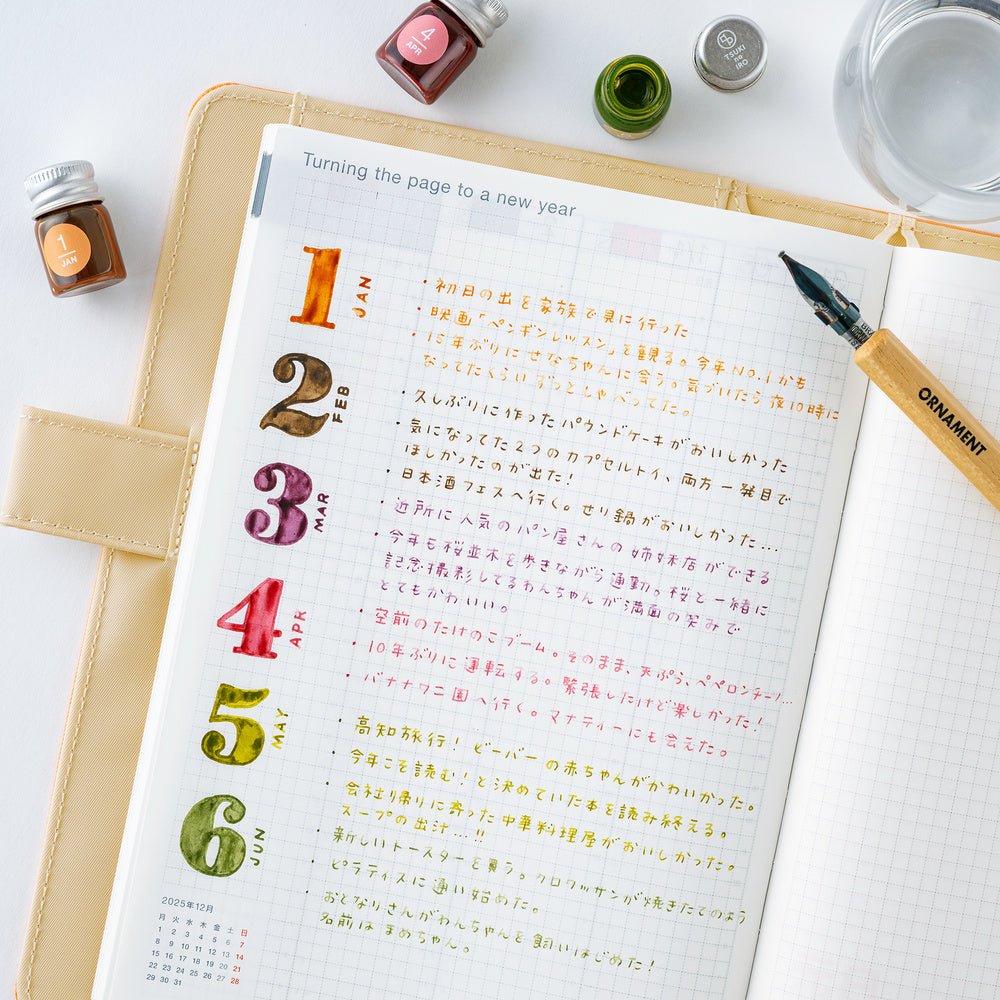 4
APR
TSUKI
no
IRO
1
JAN
Turning the page to a new year
1
JAN
・初日の出を家族で見に行った
・映画「ペンギンレッスン」を観る。今年No.1かも
・15年ぶりにせなちゃんに会う。気づいたら夜10時に
なってたくらいずっとしゃべってた。
2
FEB
・久しぶりに作ったパウンドケーキがおいしかった
・気になってた2つのカプセルトイ、両方一発目で
ほしかったのが出た!
・日本酒フェスへ行く。せり鍋がおいしかった…
3
MAR
・近所に人気のパン屋さんの姉妹店ができる
・今年も桜並木を歩きながら通勤。桜と一緒に
記念撮影してるわんちゃんが満面の笑みで
とてもかわいい。
4
APR
・空前のたけのこブーム。そのまま、天ぷら、ペペロンチーノ…
・10年ぶりに運転する。緊張したけど楽しかった!
・バナナワニ園へ行く。マナティーにも会えた。
5
MAY
・高知旅行!ビーバーの赤ちゃんがかわいかった。
・今年こそ読む!と決めていた本を読み終える。
・会社帰りに寄った中華料理屋がおいしかった。
スープの出汁…!!
6
JUN
・新しいトースターを買う。クロワッサンが焼きたてのよう
・ピラティスに通い始めた。
・おとなりさんがわんちゃんを飼いはじめた!
名前はまめちゃん。
ORNAMENT
2025年12月
月 火 水 木 金 土 日
1 2 3 4 5 6 7
8 9 10 11 12 13 14
15 16 17 18 19 20 21
22 23 24 25 26 27 28
29 30 31